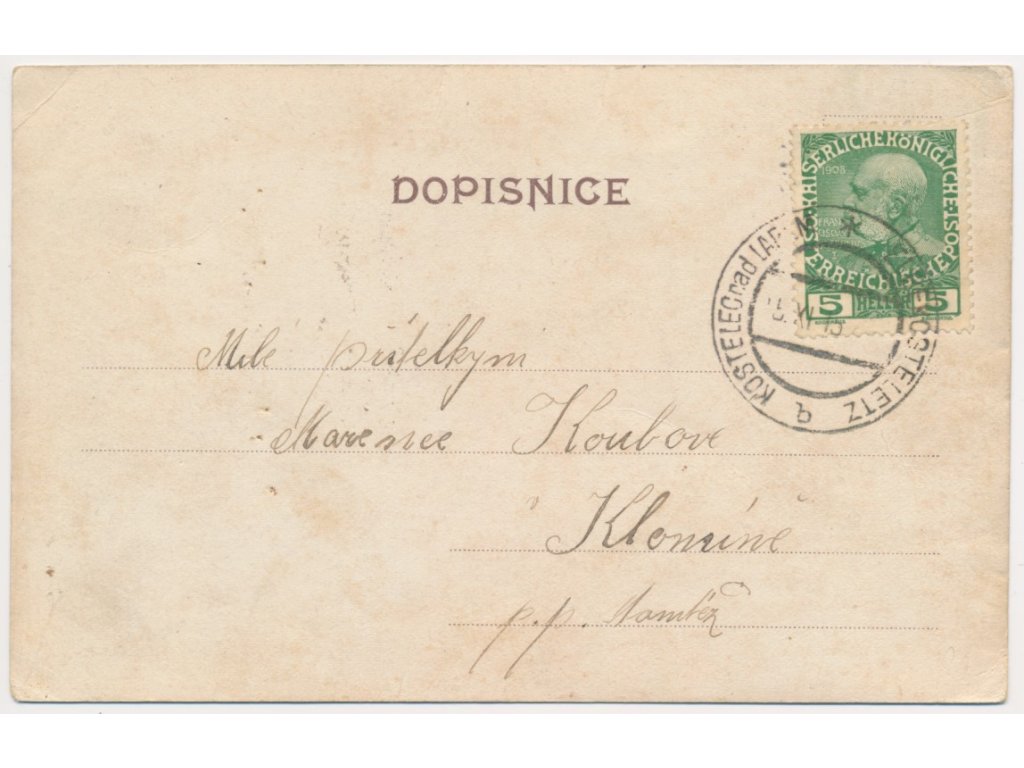 DOPISNICE
KAISERLICHE KÖNIGLICHE
ÖSTERREICHISCHE POST
1908
5 HELLER 5
KOSTELEC nad LAB
ELBEKOSTELETZ
Milé přítelkyni
Mařence Koubové
Klomíně
p.p.